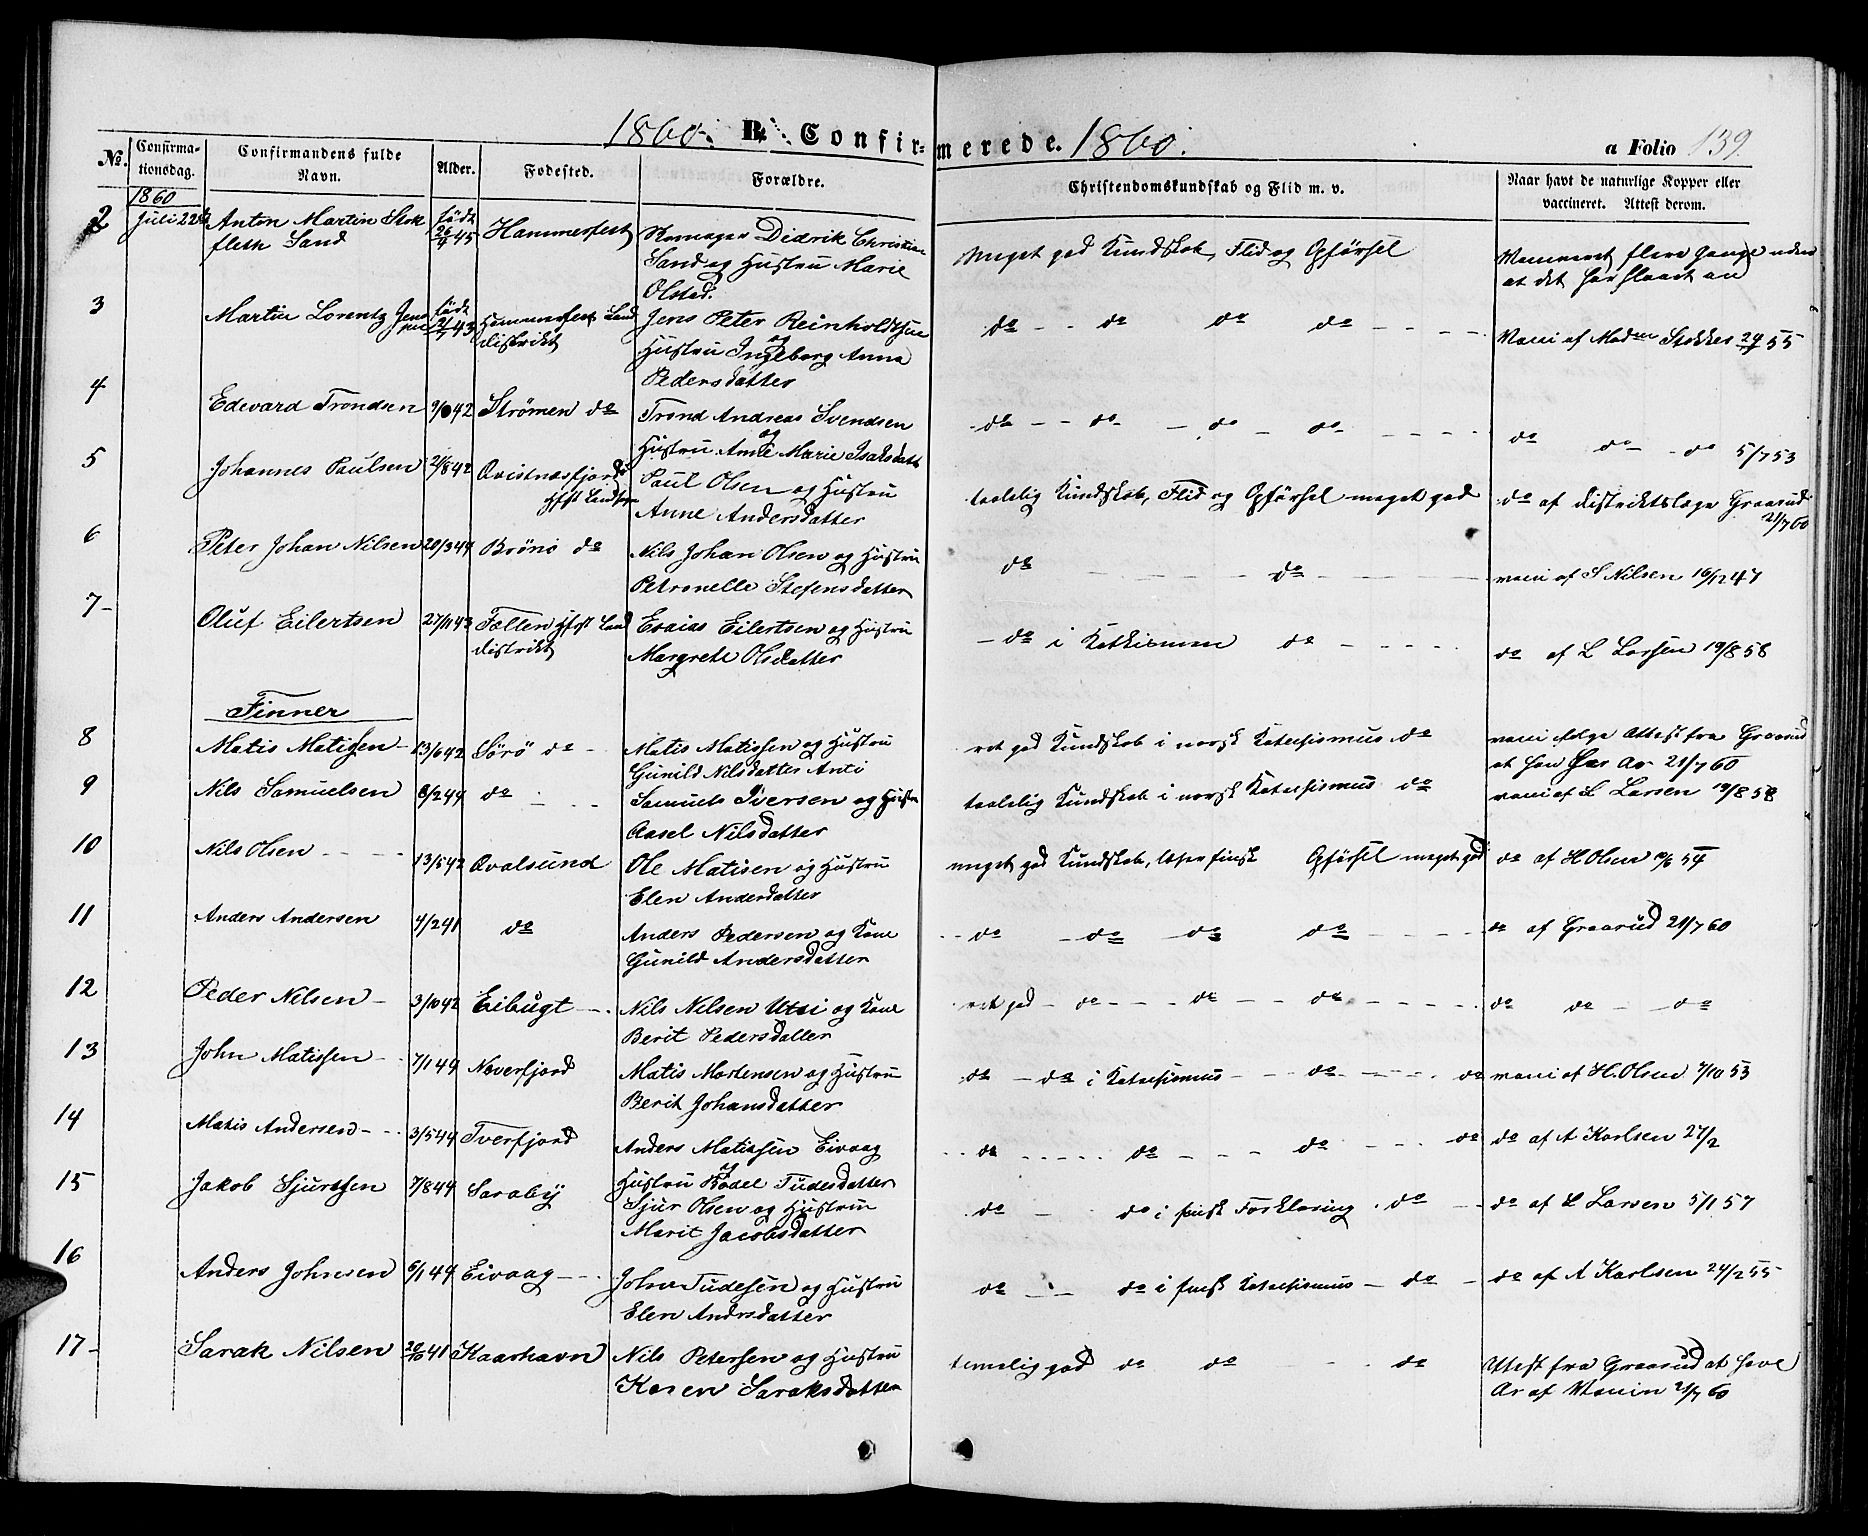 1860. B. Confirmerede. 1860.
a Folio 139.
No. Confirmationsdag. Confirmandens fulde Navn. Alder. Fødested. Forældre. Christendomskundskab og Flid m. v. Naar havt de naturlige Kopper eller vaccineret. Attest derom.
1860
2 Juli 22de Anton Martin Stok født Hammerfest Didrik Christian meget god Kundskab, Flid og Opførsel flere Gange uden
fleth Sand 26/4 45 Sand og Hustru Marie at det har slaaet an
Olstad.
3 Martin Lorentz Jens født Hammerfest Land Jens Peter Reinholdtsen do - - do do do - - - - Vacci af Madm Stokkes 24/7 55
sen 2/7 43 distrikt og
Hustru Ingeborg Anna
Pedersdatter
4 Edevard Trondsen 9/10 42 Strømen do Trond Andreas Svendsen do - - do - do - do - - - - do do - do 5/7 53
og
Hustru Anne Marie Isaksdatt
5 Johannes Paulsen 21/8 42 Qvistnæsfjord Paul Olsen og Hustru taalelig Kundskab, Flid og Opførsel meget god do af Distriktslæge Graarud
Hfst Landsn Anne Andersdatter 21/7 60
6 Peter Johan Nilsen 20/3 44 Brönö do Nils Johan Olsen og Hustru do - - - - do - - - - vacci af S Nilsen 16/12 47
Petronelle Stefensdatter
7 - Oluf Eilertsen 27/11 43 Fællen Hfst Land Esaias Eilertsen og Hustru - do i Katkismen do - - - - do af L Larsen 19/8 58
distrikt Margrete Olsdatter
Finner
8 Matis Matissen - 13/6 42 Sörö do - Matis Matissen og Hustru ret god Kundskab i norsk Katechismus do vacci følge Attest fra Graarud
Gunild Nilsdatter Anti at han har Ar 21/7 60
9 Nils Samuelsen 8/2 44 do - - - Samuel Iversen og Hustru taalelig Kundskab i norsk Katechismus do vacci af L Larsen 19/8 58
Aasel Nilsdatter
10 Nils Olsen - - - - 13/5 42 Qvalsund Ole Matisen og Hustru meget god Kundskab, læser finsk Opførsel meget god do af H Olsen 10/6 54
Elen Andersdatter
11 Anders Andersen 4/2 41 do Anders Pedersen og Kone - - do - do - do do - - - - do af Graarud 21/7 60
Gunild Andersdatter
12 Peder Nilsen - 3/10 42 Eibugt - - Nils Nilsen Utsi og Kone ret god - do - - - do - - do - - - - do do - - do
Berit Pedersdatter
13 John Matissen - - 7/1 44 Noverfjord Matis Mortensen og Hustru do - do i Katechismus - - do - - - - do vacci af H. Olsen 7/10 53
Berit Johansdatter
14 Matis Andersen - - - 3/5 44 Tverfjord Anders Matissen Eivaag - - do - - - - do - - - do - - - do do af A Karlsen 27/2
og
Hustru Bodel Tudesdatter
15 Jakob Sjurssen 7/8 44 Saraby Sjur Olsen og Hustru do - do i finsk Forklaring do - - do af L Larsen 5/1 57
Marit Jacobsdatter
16 Anders Johnsen 6/1 44 Eivaag - - - John Tudesen og Hustru do - - do i finsk Katechismus - do - do af A Karlsen 24/2 55
Elen Andrsdatter
17 - Sarak Nilsen 20/10 41 Kaarhavn Nils Petersen og Hustru temmelig god do do - do Attest fra Graarud at have
Karen Saraksdatter Ar af Vaccin 21/7 60